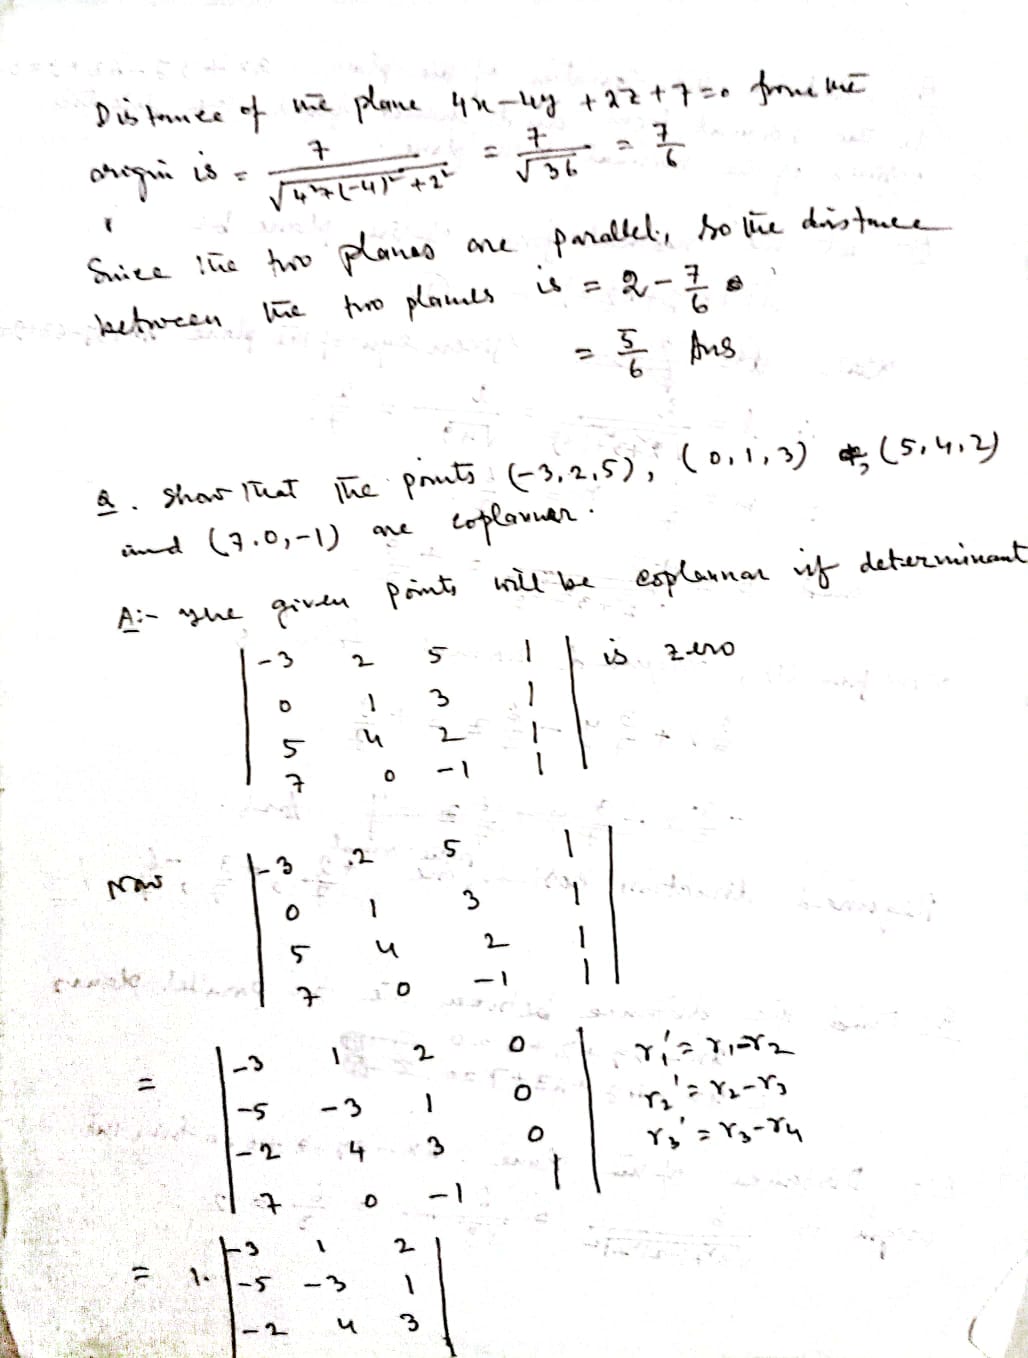 Distance of the plane 4x-4y+2z+7=0 from the
origin is = 7/√(4²+(-4)²+2²) = 7/√36 = 7/6
Since the two planes are parallel, so the distance
between the two planes is = 2 - 7/6
= 5/6 Ans
Q. Show that the points (-3,2,5), (0,1,3), (5,4,2)
and (7.0,-1) are coplannar.
A:- The given points will be coplannar if determinant
| -3 2 5 1 | is zero
0 1 3 1
5 4 2 1
7 0 -1 1
Now | -3 2 5 1 |
0 1 3 1
5 4 2 1
7 0 -1 1
= | -3 1 2 0 | r₁' = r₁-r₂
-5 -3 1 0 r₂' = r₂-r₃
-2 4 3 0 r₃' = r₃-r₄
7 0 -1 1
= 1. | -3 1 2 |
-5 -3 1
-2 4 3